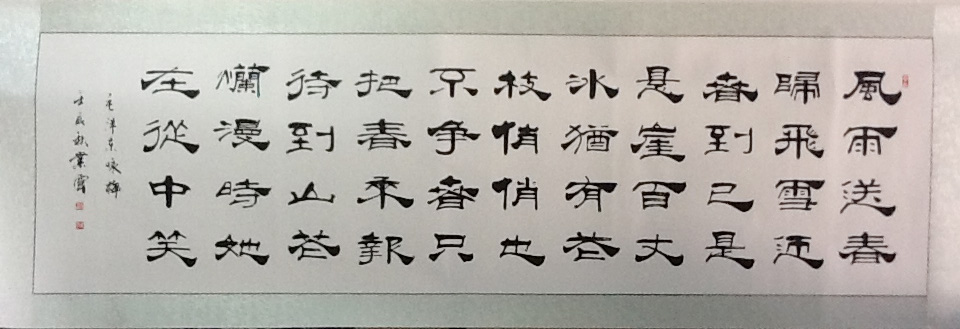 風雨送春
歸飛雪迎
春到已是
是崖百丈
冰猶有花
枝俏俏也
不爭春只
把春來報
待到山花
爛漫時她
在從中笑
毛泽东咏梅